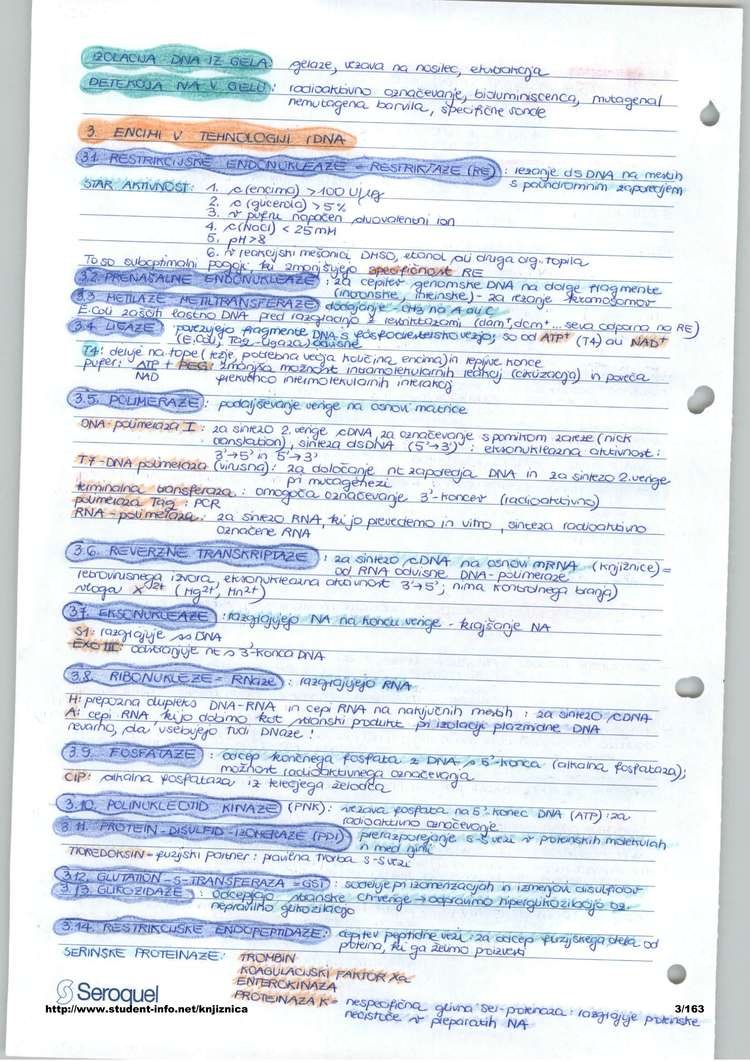 IZOLACIJA DNA IZ GELA: gelaze, vezava na nosilec, ekstrakcija
DETEKCIJA NA V GELU: radioaktivno označevanje, bioluminiscenca, mutagena/
nemutagena barvila, specifične sonde
3. ENCIMI V TEHNOLOGIJI rDNA
3.1. RESTRIKCIJSKE ENDONUKLEAZE = RESTRIKTAZE (RE): rezanje dsDNA na mestih
s palindromnim zaporedjem
STAR AKTIVNOST: 1. c(encima) >100 U/μg
2. c(glicerola) >5%
3. v pufru napačen dvovalentni ion
4. c(NaCl) < 25mM
5. pH>8
6. v reakcijski mešanici DMSO, etanol ali druga org. topila
To so suboptimalni pogoji, ki zmanjšujejo specifičnost RE
3.2. PRENAŠALNE ENDONUKLEAZE: za cepitev genomske DNA na dolge fragmente
(intronske, inteinske) - za rezanje kromosomov
3.3. METILAZE METILTRANSFERAZE dodajanje -CH3 na A ali C
E.Coli zaščiti lastno DNA pred razgradnjo z restriktazami (dam+, dcm+ ...seva odporna na RE)
3.4. LIGAZE povezujejo fragmente DNA s fosfodiestersko vezjo; so od ATP+ (T4) ali NAD+
(E.Coli, Taq-ligaza) odvisne
T4: deluje na tope (težje, potrebna večja količina encima) in lepljive konce
pufer: ATP + PEG: zmanjša možnost intramolekularnih reakcij (ciklizacija) in poveča
NAD frekvenco intermolekularnih interakcij
3.5. POLIMERAZE: podaljševanje verige na osnovi matrice
DNA-polimeraza I: za sintezo 2. verige cDNA, za označevanje s pomikom zareze (nick
translation), sinteza dsDNA (5'→3'); eksonukleazna aktivnost:
3'→5' in 5'→3'
T7-DNA polimeraza (virusna): za določanje nt zaporedja DNA in za sintezo 2. verige
pri mutagenezi
terminalna transferaza: omogoča označevanje 3'-koncev (radioaktivno)
polimeraza Taq: PCR
RNA-polimeraza: za sintezo RNA, ki jo prevedemo in vitro, sinteza radioaktivno
označene RNA
3.6. REVERZNE TRANSKRIPTAZE: za sintezo cDNA na osnovi mRNA (knjižnice) =
od RNA odvisne DNA-polimeraze
retrovirusnega izvora, eksonukleazna aktivnost 3'→5'; nima kontrolnega branja)
vloga X2+ (Mg2+, Mn2+)
3.7. EKSONUKLEAZE: razgrajujejo NA na koncu verige - krajšanje NA
S1: razgrajuje ss DNA
EXO III: odstranjuje nt s 3'-konca DNA
3.8. RIBONUKLEZE = RNaze: razgrajujejo RNA
H: prepozna dupleks DNA-RNA in cepi RNA na naključnih mestih: za sintezo cDNA
A: cepi RNA, ki jo dobimo kot stranski produkt pri izolaciji plazmidne DNA
nevarno, da vsebujejo tudi DNaze!
3.9. FOSFATAZE: odcep končnega fosfata z DNA s 5'-konca (alkalna fosfataza);
možnost radioaktivnega označevanja
CIP: alkalna fosfataza iz telečjega želodca
3.10. POLINUKLEOTID KINAZE (PNK): vezava fosfata na 5'-konec DNA (ATP): za
radioaktivno označevanje
3.11. PROTEIN-DISULFID-IZOMERAZE (PDI) prerazporejanje S-S vezi v proteinskih molekulah
in med njimi
TIOREDOKSIN = fuzijski partner: pravilna tvorba S-S vezi
3.12. GLUTATION-S-TRANSFERAZA = GST: sodeluje pri izomerizacijah in izmenjavi disulfidov
3.13. GLIKOZIDAZE: odcepljajo stranske CH verige → odpravimo hiperglikozilacijo oz.
nepravilno glikozilacijo
3.14. RESTRIKCIJSKE ENDOPEPTIDAZE: cepitev peptidne vezi: za odcep fuzijskega dela od
proteina, ki ga želimo proizvesti
SERINSKE PROTEINAZE: TROMBIN
KOAGULACIJSKI FAKTOR Xa
ENTEROKINAZA
PROTEINAZA K = nespecifična glivna ser-proteinaza: razgrajuje proteinske
nečistoče v preparatih NA
Seroquel
http://www.student-info.net/knjiznica 3/163